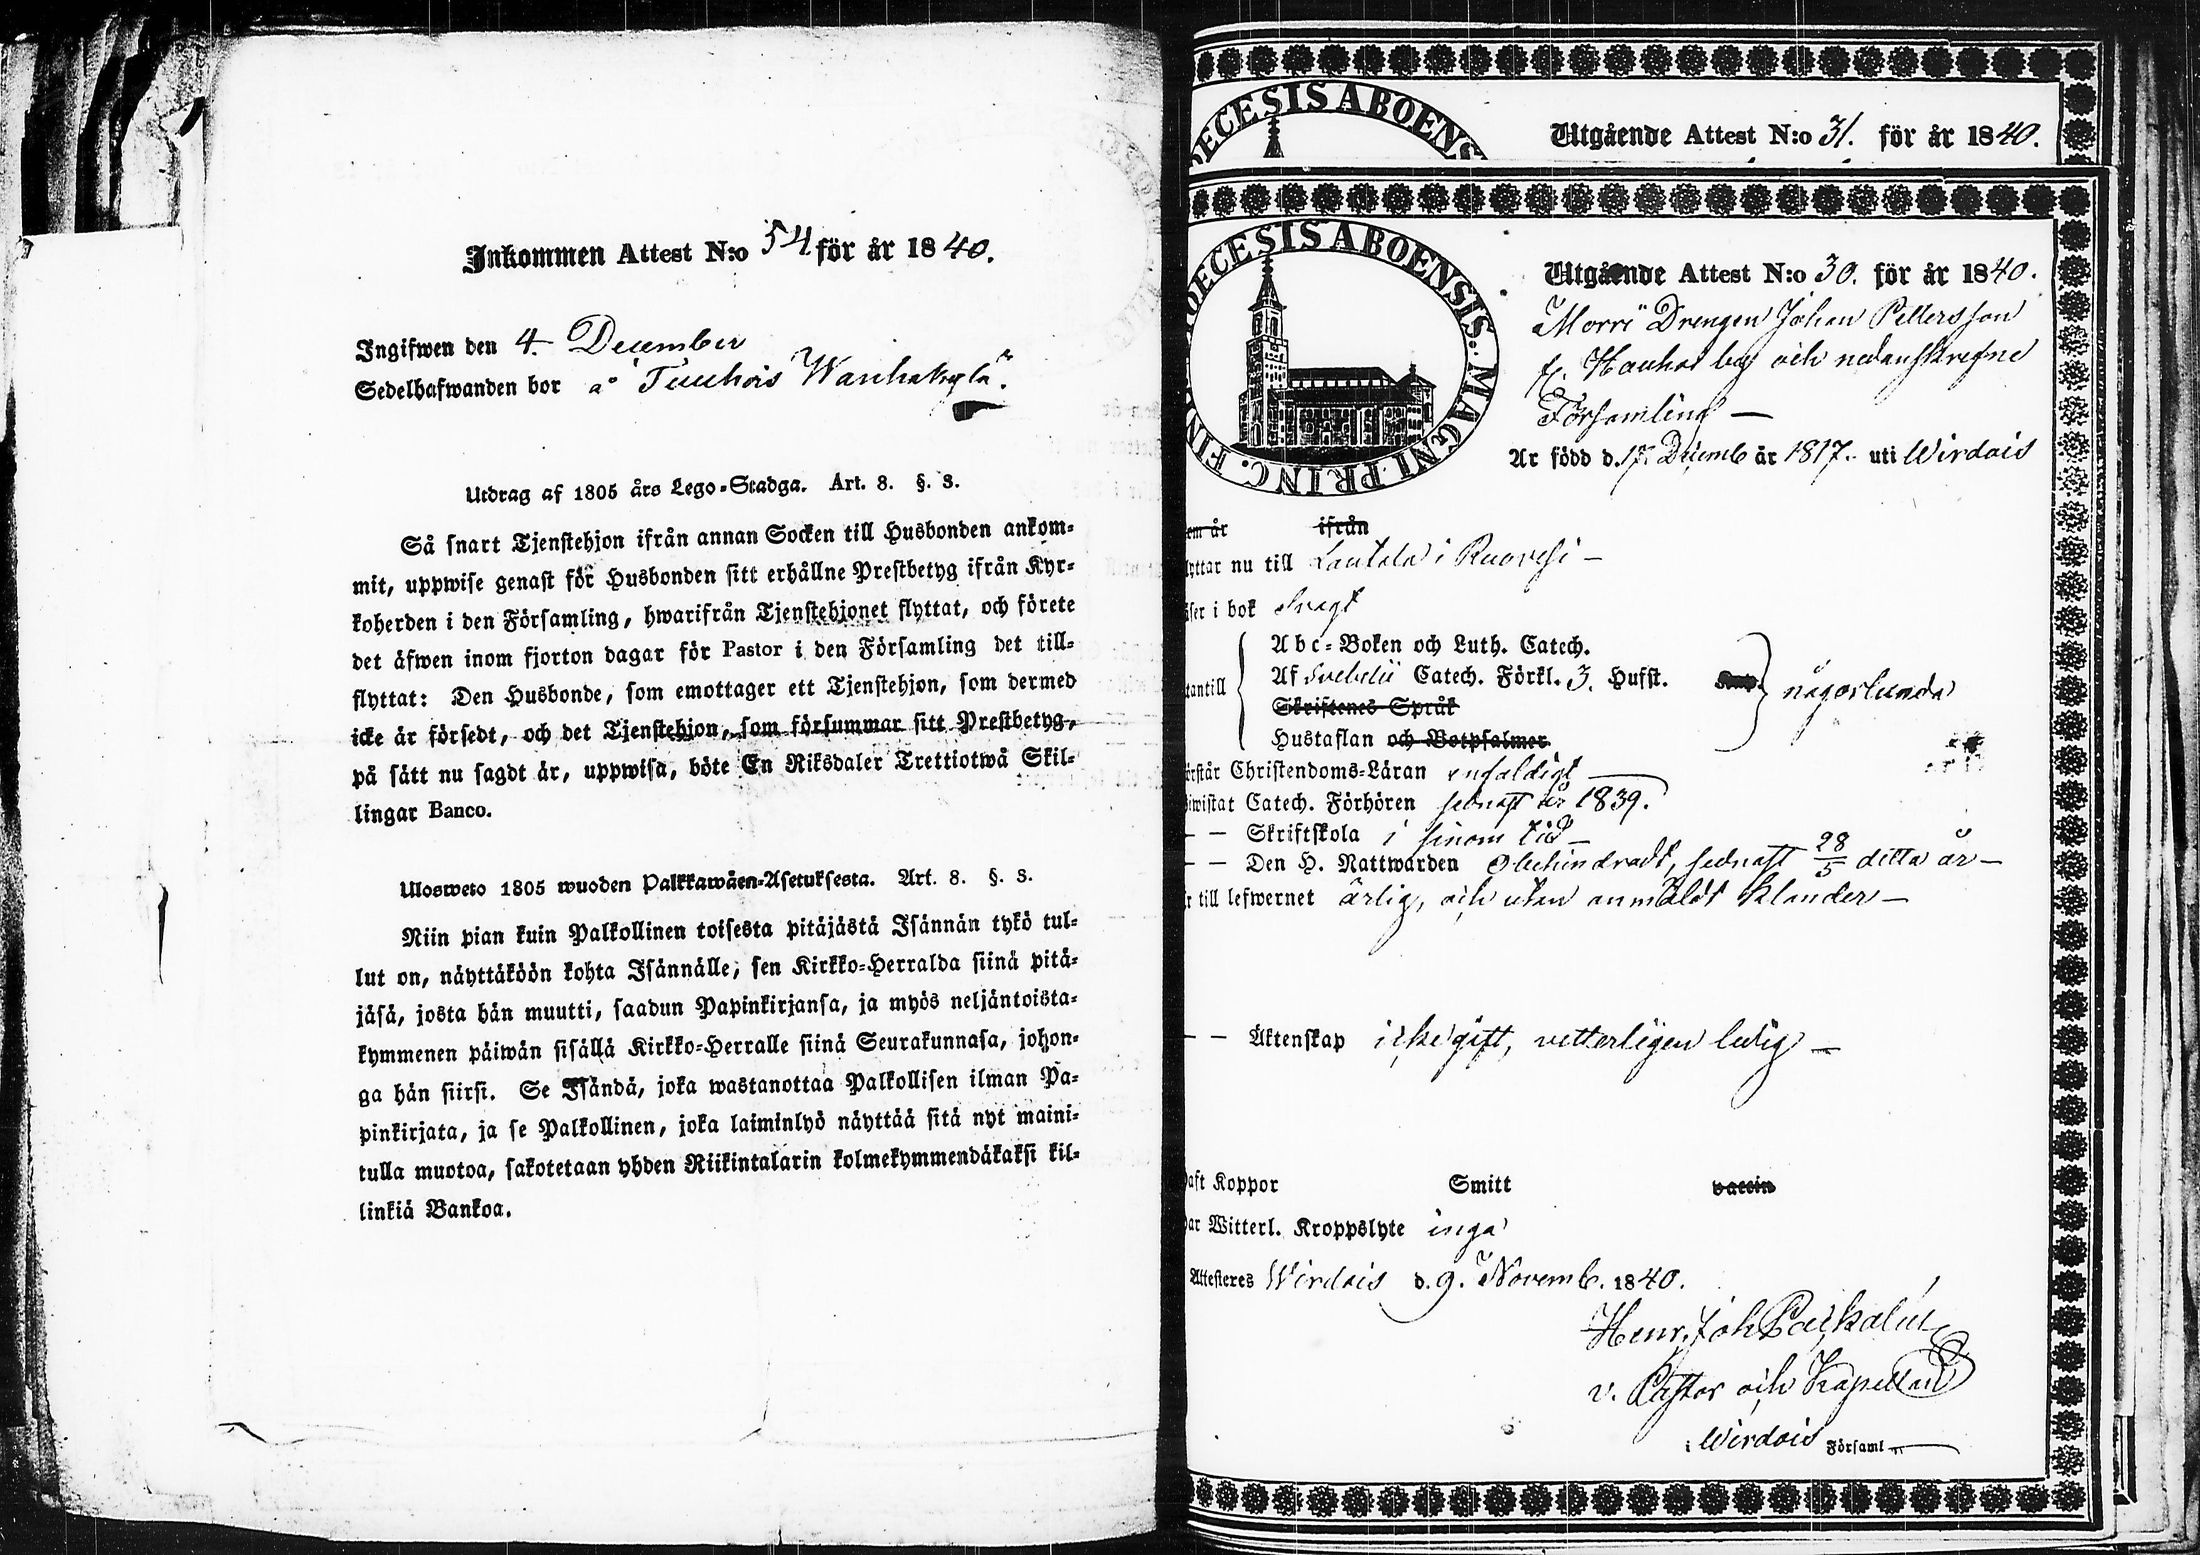 Inkommen Attest N:o 54 för år 1840.
Ingifwen den 4. December
Sedelhafwanden bor å Tuuhois Wanhakylä.
Utdrag af 1805 års Lego-Stadga. Art. 8. §. 3.
Så snart Tjenstehjon ifrån annan Socken till Husbonden ankom-
mit, uppwise genast för Husbonden sitt erhållne Prestbetyg ifrån Kyr-
koherden i den Församling, hwarifrån Tjenstehjonet flyttat, och förete
det äfwen inom fjorton dagar för Pastor i den Församling det till-
flyttat: Den Husbonde, som emottager ett Tjenstehjon, som dermed
icke är försedt, och det Tjenstehjon, som försummar sitt Prestbetyg,
på sätt nu sagdt är, uppwisa, böte En Riksdaler Trettiotwå Skil-
lingar Banco.
Ulosweto 1805 wuoden Palkkawäen-Asetuksesta. Art. 8. §. 3.
Niin pian kuin Palkollinen toisesta pitäjästä Isännän tykö tul-
lut on, näyttäköön kohta Isännälle, sen Kirkko-Herralda siinä pitä-
jäsä, josta hän muutti, saadun Papinkirjansa, ja myös neljäntoista-
kymmenen päiwän sisällä Kirkko-Herralle siinä Seurakunnasa, johon-
ga hän siirsi. Se Isändä, joka wastanottaa Palkollisen ilman Pa-
pinkirjata, ja se Palkollinen, joka laiminlyö näyttää sitä nyt maini-
tulla muotoa, sakotetaan yhden Riikintalarin kolmekymmendäkaksi kil-
linkiä Bankoa.
DECESIS ABOENS
Utgående Attest N:o 31. för år 1840.
DECESIS ABOENSIS. MAGNI PRINC. FIN
Utgående Attest N:o 30. för år 1840.
Drengen Johan Pettersson
Hauhoi by och nedanskrefne
Församling —
Är född d. 17. Decemb år 1817. uti Wirdois
om år ifrån
lyttar nu till Lautala i Ruovesi —
äser i bok svagt
tantill
Abc-Boken och Luth. Catech.
Af Svebelii Catech. Förkl. 3. Hufst.
Skriftenes Språk
Hustaflan och Botpsalmer
någorlunda
örstår Christendoms-Läran enfaldigt —
wistat Catech. Förhören sednast år 1839.
— — Skriftskola i sinom tid —
— — Den H. Nattwarden obehindradt, sednast 28/5 ditto år —
r till lefwernet ärlig, och utan anmäldt klander —
— — Äktenskap icke gift, vetterligen ledig —
aft Koppor Smitt vaccin
ar Witterl. Kroppslyte inga
Attesteres Wirdois d. 9. Novemb. 1840.
Henr. Joh
v. Pastor och Kapellan
i Wirdois Församl